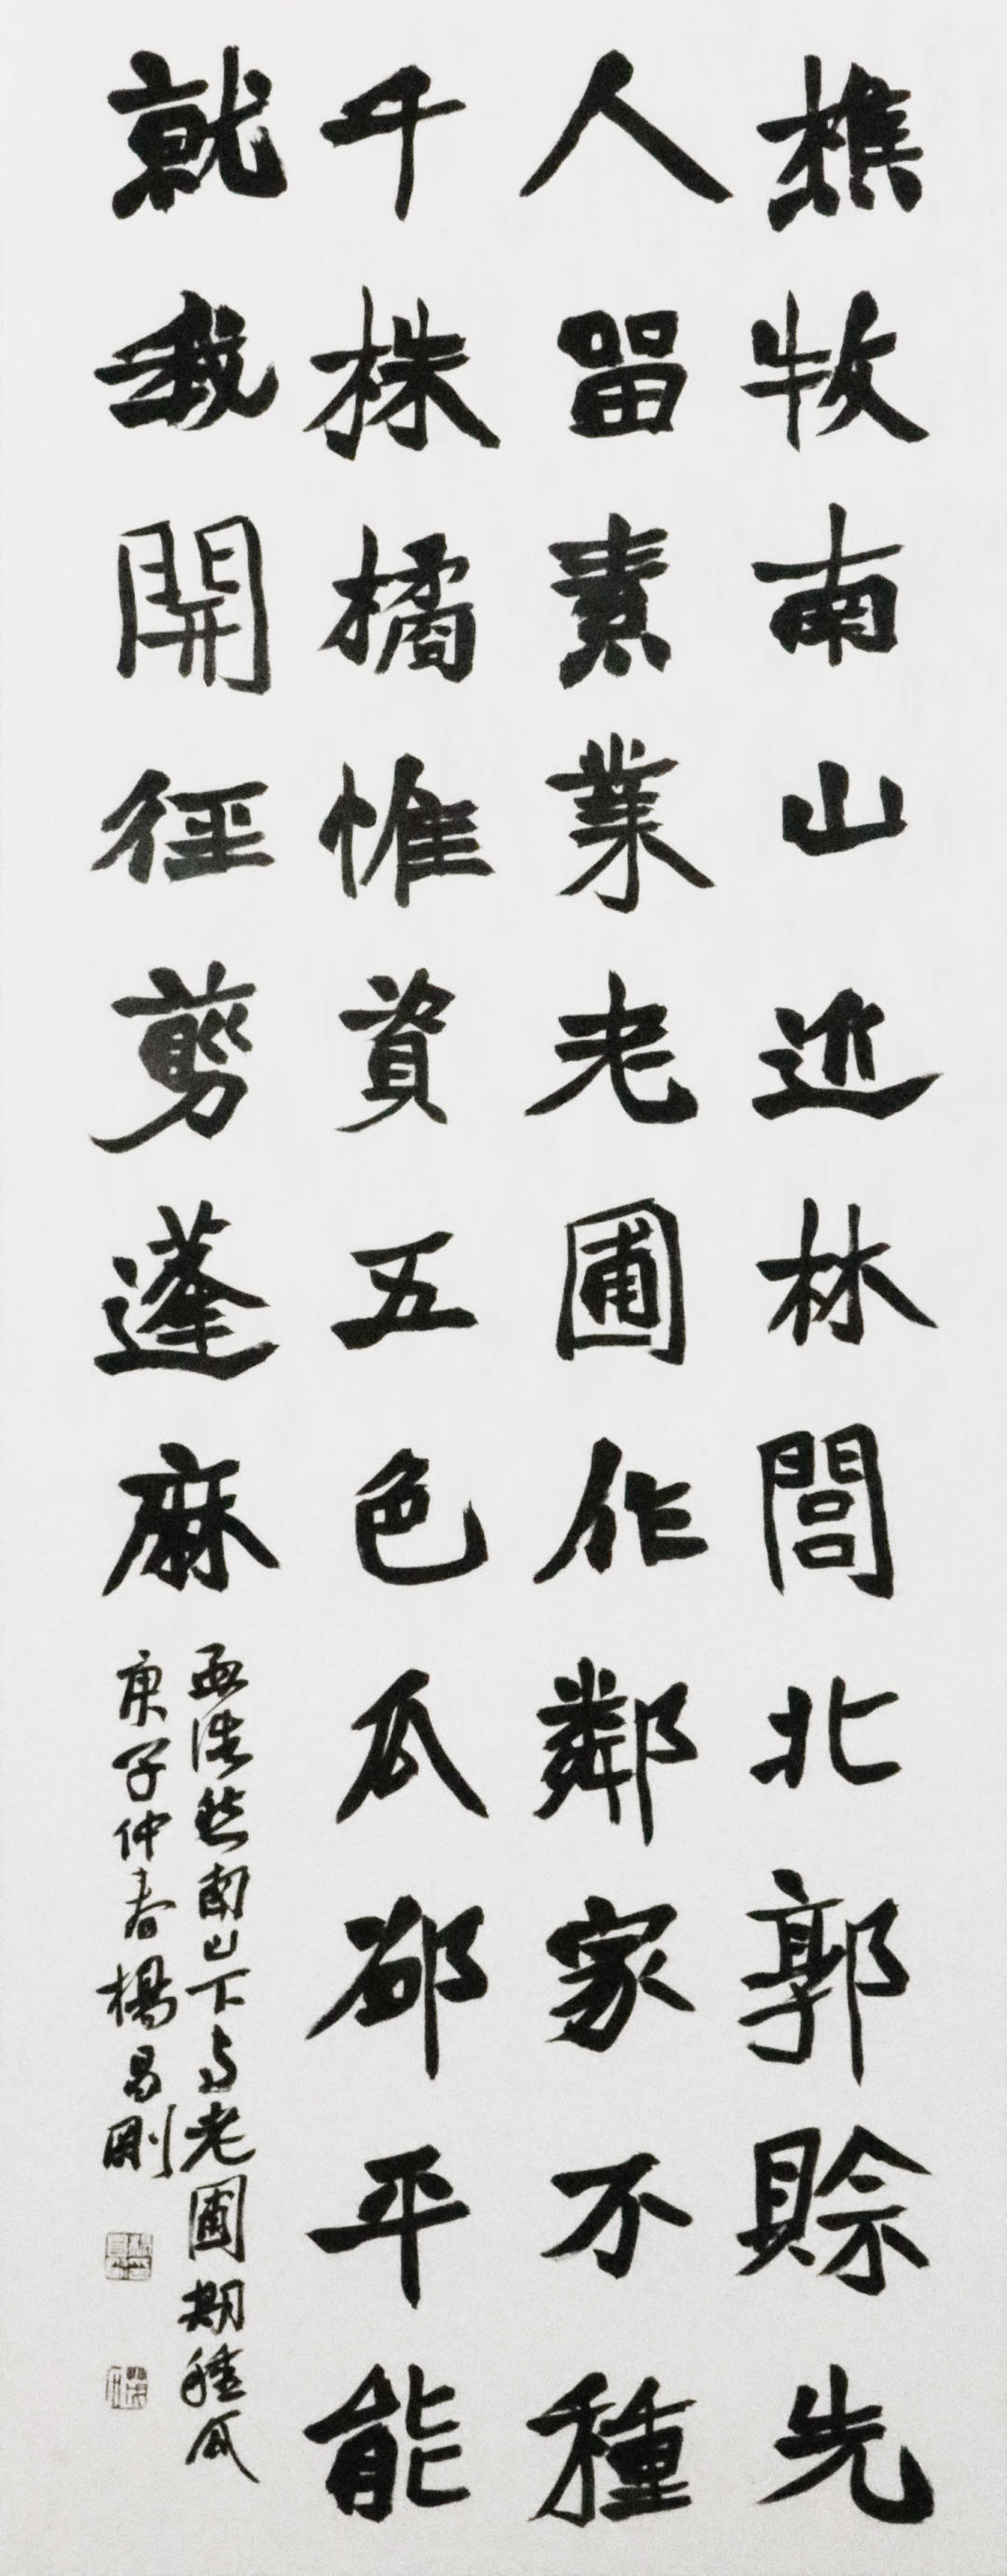 樵牧南山近林閭北郭賒先
人留素業老圃作鄰家不種
千株橘惟資五色瓜邵平能
就我開徑剪蓬麻
孟浩然南山下与老圃期種瓜
庚子仲春楊昌剛